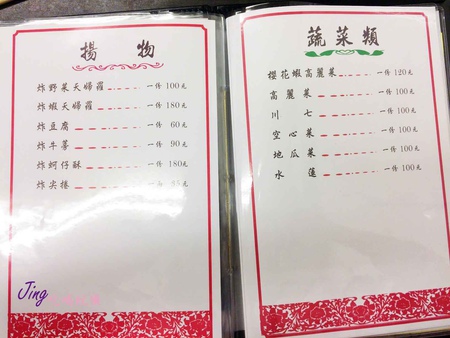 揚物
炸野菜天婦羅 一份 100元
炸蝦天婦羅 一份 180元
炸豆腐 一份 60元
炸牛蒡 一份 90元
炸蚵仔酥 一份 180元
炸尖捲
Jing
蔬菜類
櫻花蝦高麗菜 一份 120元
高麗菜 一份 100元
川七 一份 100元
空心菜 一份 100元
地瓜菜 一份 100元
水蓮 一份 100元